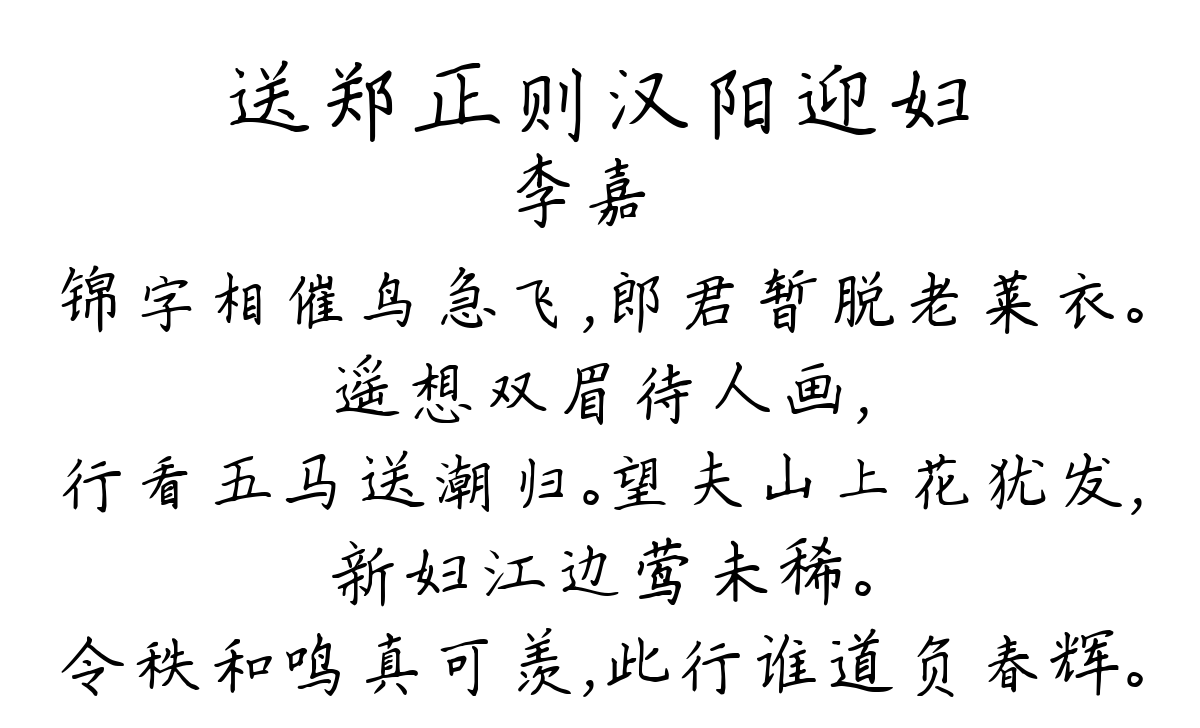 送郑正则汉阳迎妇
李嘉
锦字相催鸟急飞,郎君暂脱老莱衣。
遥想双眉待人画,
行看五马送潮归。望夫山上花犹发,
新妇江边莺未稀。
令秩和鸣真可羡,此行谁道负春辉。